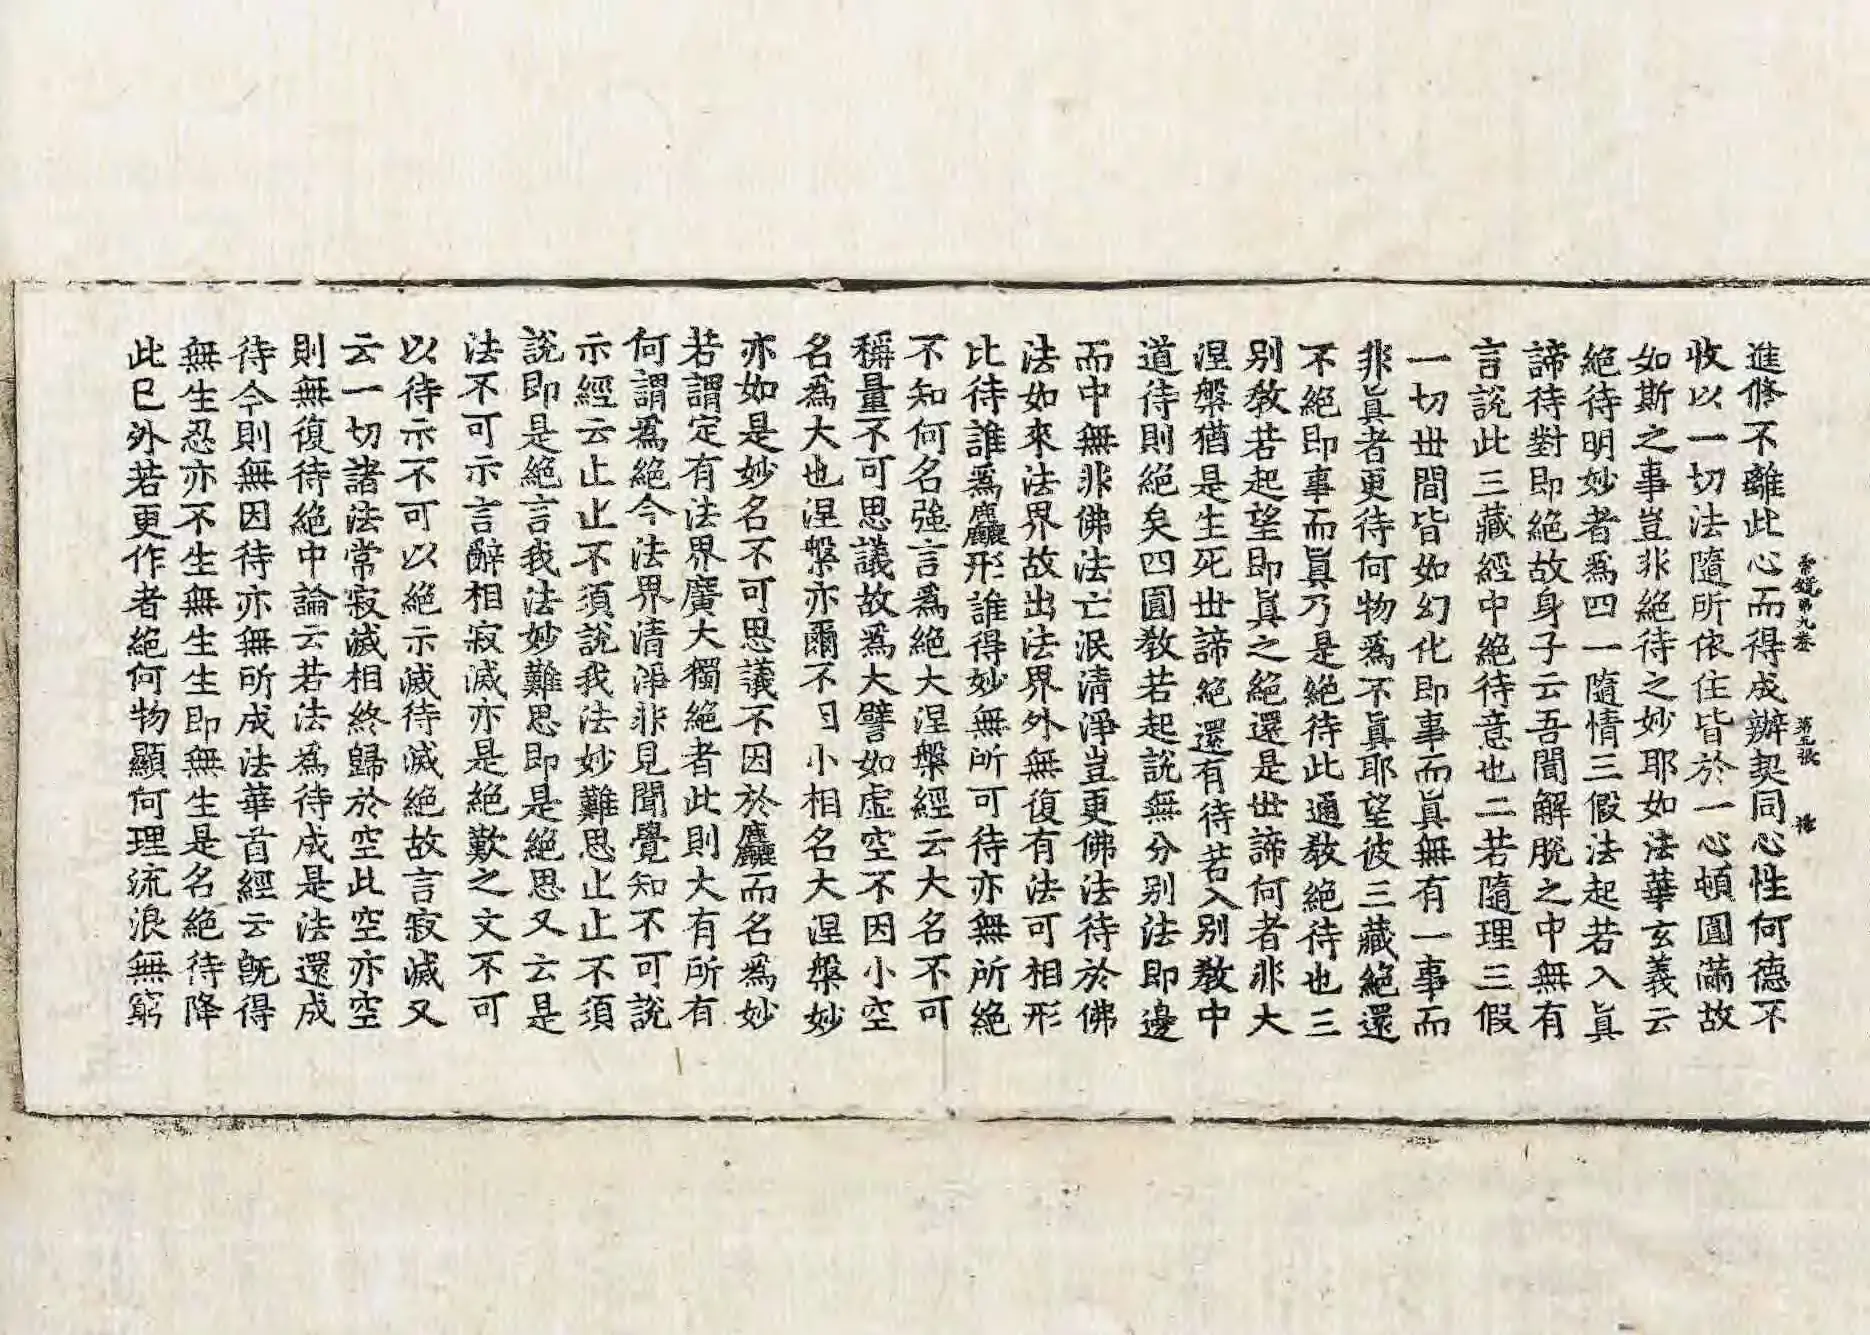 宗鏡第九卷 第五張 禄
進修不離此心而得成辦契同心性何德不
收以一切法隨所依住皆於一心頓圓滿故
如斯之事豈非絕待之妙耶如法華玄義云
絕待明妙者爲四一隨情三假法起若入眞
諦待對即絕故身子云吾聞解脫之中無有
言說此三藏經中絕待意也二若隨理三假
一切世間皆如幻化即事而眞無有一事而
非眞者更待何物爲不眞耶望彼三藏絕還
不絕即事而眞乃是絕待此通教絕待也三
別教若起望即眞之絕還是世諦何者非大
涅槃猶是生死世諦絕還有待若入別教中
道待則絕矣四圓教若起說無分別法即邊
而中無非佛法亡泯清淨豈更佛法待於佛
法如來法界故出法界外無復有法可相形
比待誰爲麤形誰得妙無所可待亦無所絕
不知何名強言爲絕大涅槃經云大名不可
稱量不可思議故爲大譬如虛空不因小空
名爲大也涅槃亦爾不因小相名大涅槃妙
亦如是妙名不可思議不因於麤而名爲妙
若謂定有法界廣大獨絕者此則大有所有
何謂爲絕今法界清淨非見聞覺知不可說
示經云止止不須說我法妙難思止止不須
說即是絕言我法妙難思即是絕思又云是
法不可示言辭相寂滅亦是絕歎之文不可
以待示不可以絕示滅待滅絕故言寂滅又
云一切諸法常寂滅相終歸於空此空亦空
則無復待絕中論云若法爲待成是法還成
待今則無因待亦無所成法華首經云旣得
無生忍亦不生無生生即無生是名絕待降
此已外若更作者絕何物顯何理流浪無窮